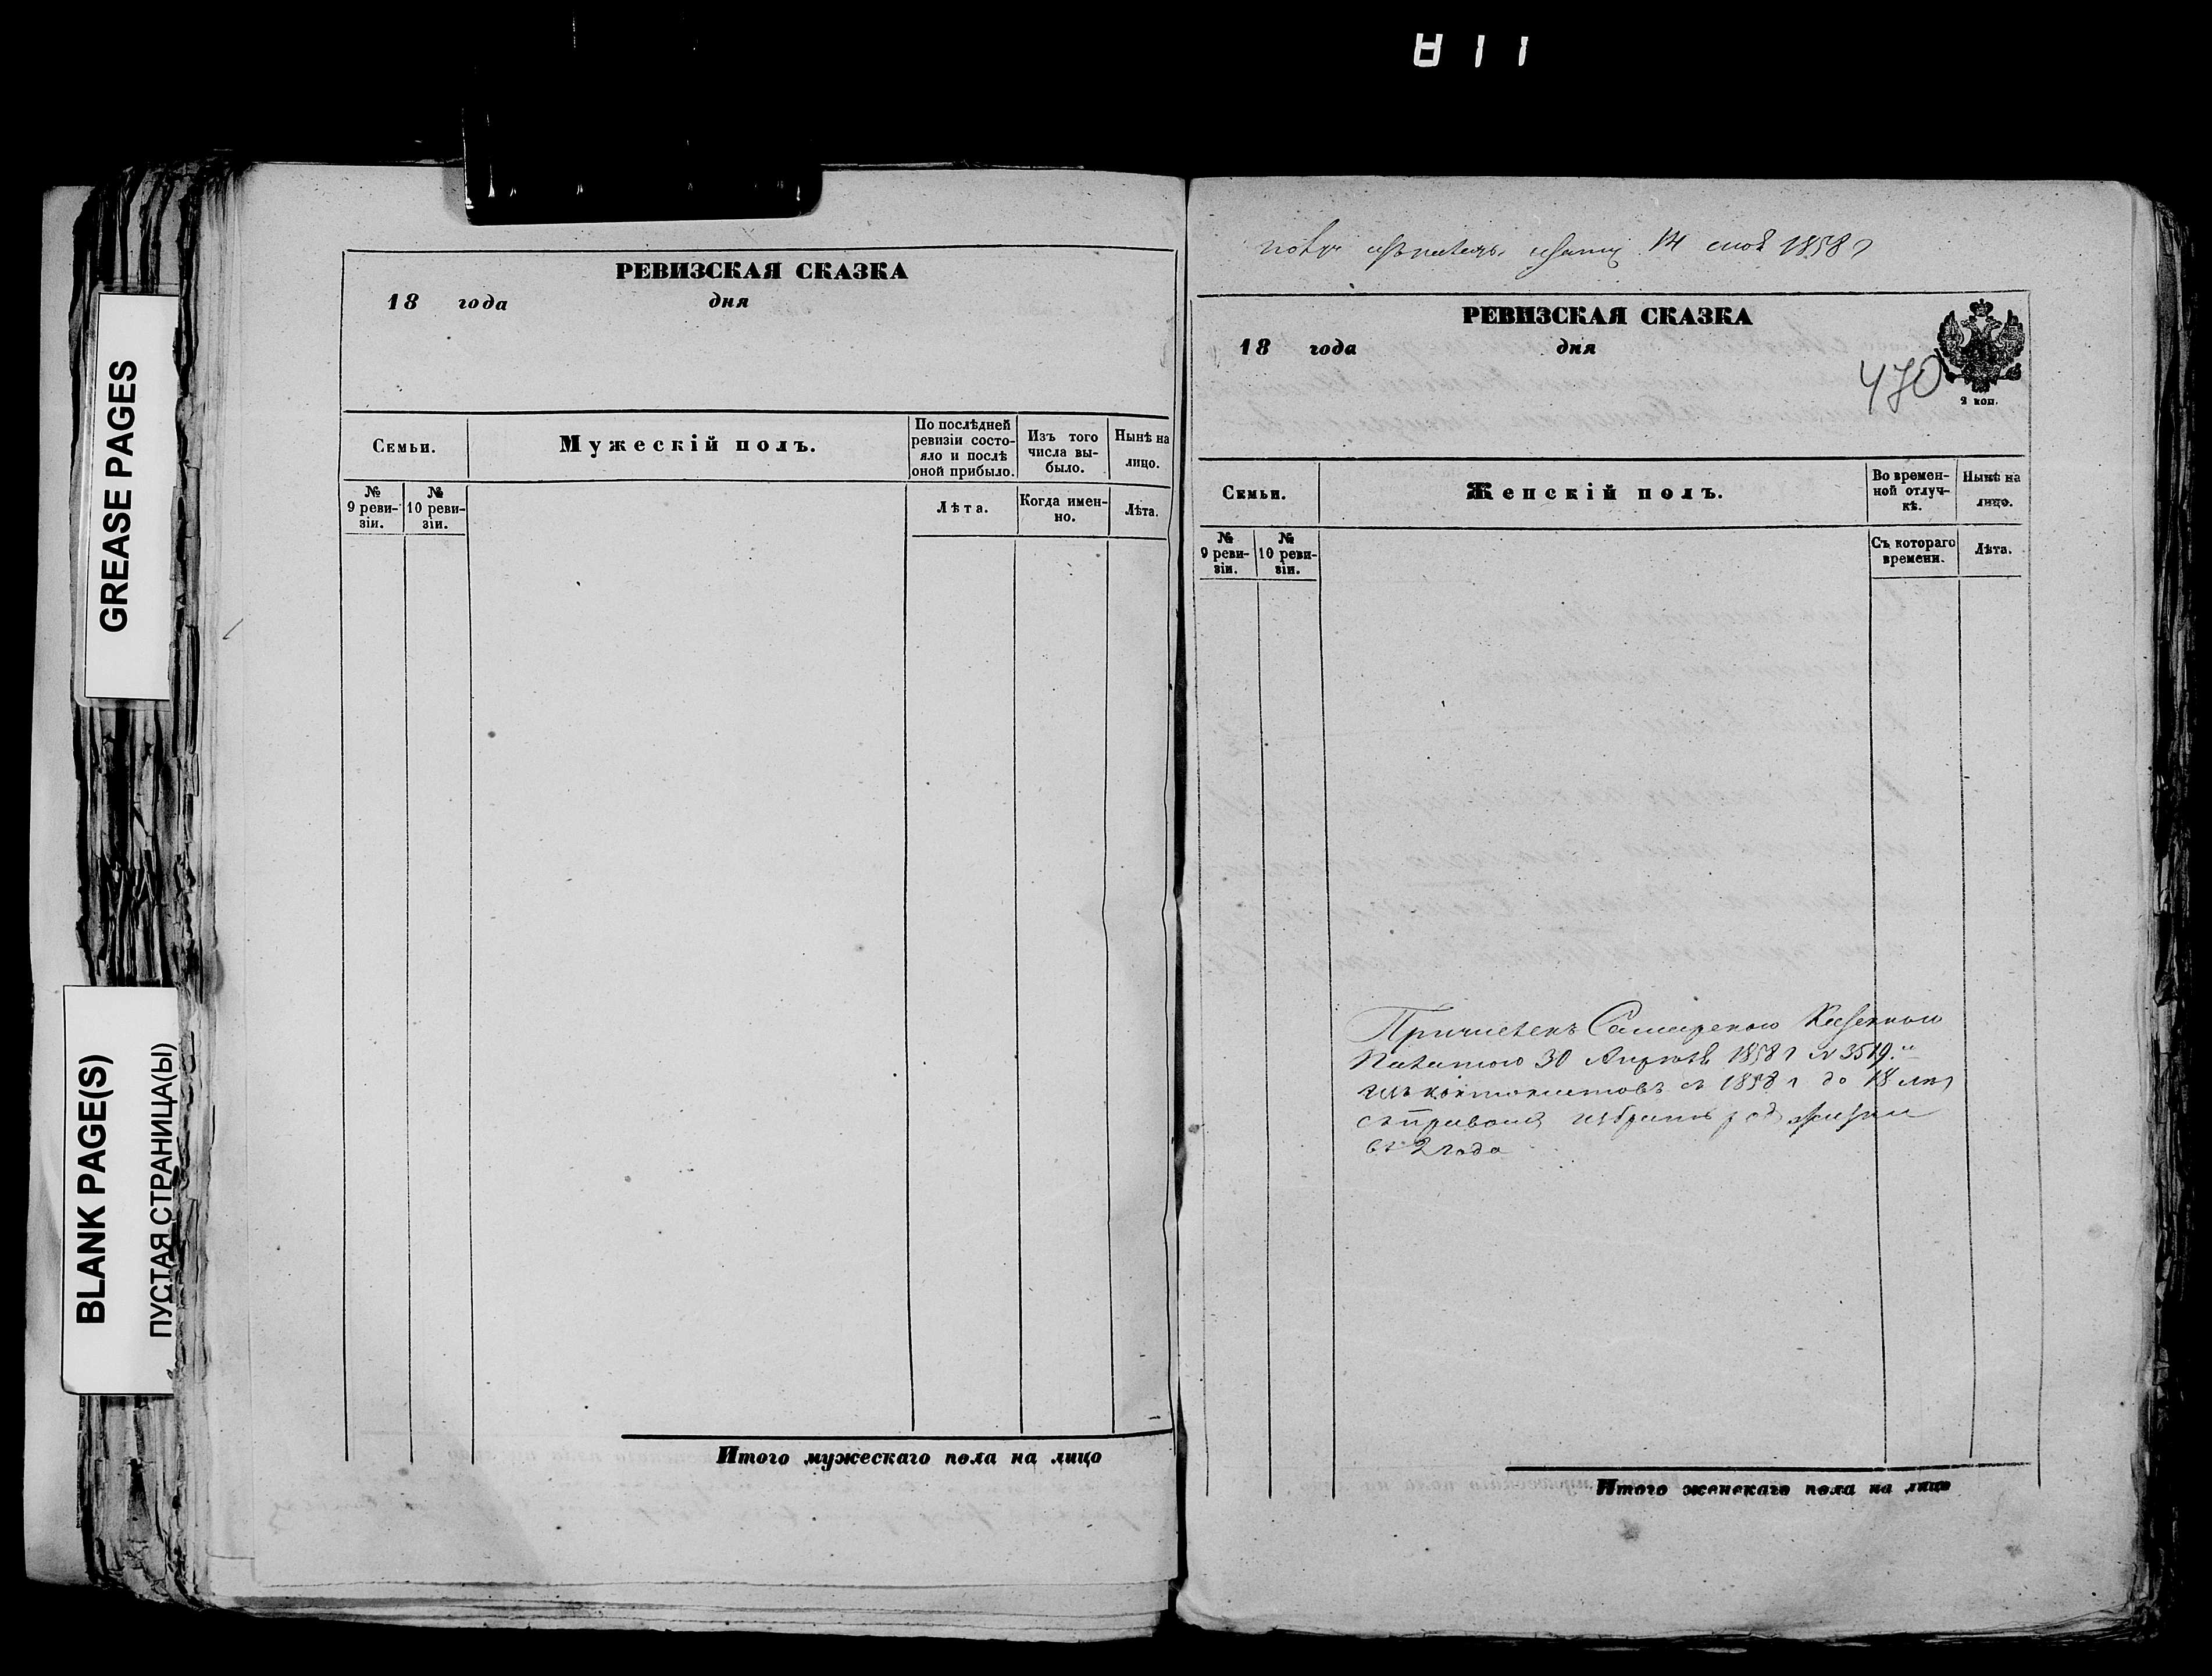 811
GREASE PAGES
BLANK PAGE(S)
ПУСТАЯ СТРАНИЦА(Ы)
РЕВИЗСКАЯ СКАЗКА
18 года дня
Семьи.
Мужескій полъ.
По послѣдней
ревизіи состо-
яло и послѣ
оной прибыло.
Изъ того
числа вы-
было.
Нынѣ на
лицо.
№
9 реви-
зіи.
№
10 реви-
зіи.
Лѣта.
Когда имен-
но.
Лѣта.
Итого мужескаго пола на лицо
14 1858 г
РЕВИЗСКАЯ СКАЗКА
18 года дня
470
2 коп.
Семьи.
Женскій полъ.
Во времен-
ной отлуч-
кѣ.
Нынѣ на
лицо.
№
9 реви-
зіи.
№
10 реви-
зіи.
Съ котораго
времени.
Лѣта.
Причисленъ Самарскою Казенною
Палатою 30 Апрѣля 1858 г № 3519.
изъ кантонистовъ съ 1858 г. до 18 лѣт
избрать родъ жизни
въ 2 года
Итого женскаго пола на лицо